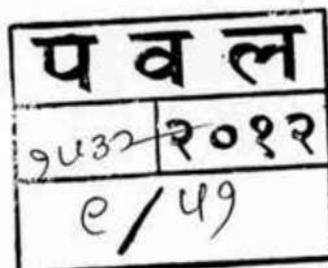 प व ल
१५३२ २०१२
९/५१